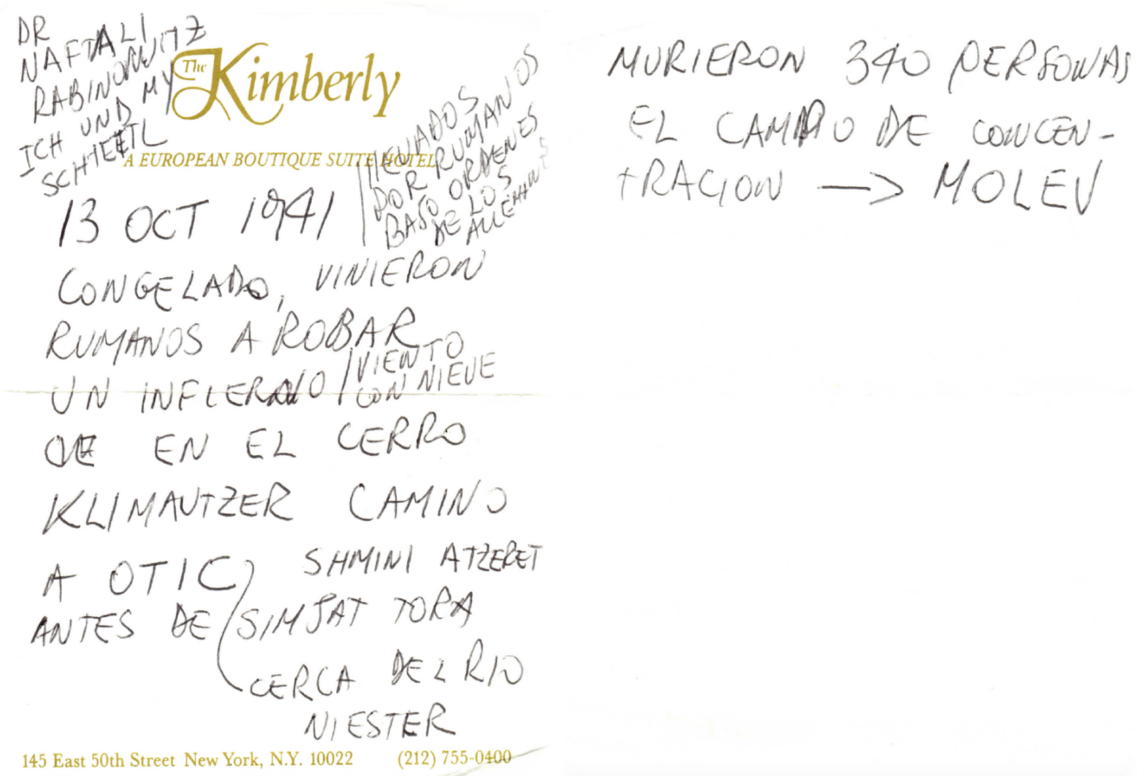 DR
NAFTALI
RABINOWITZ
ICH UND MY
SCHTETL
The Kimberly
A EUROPEAN BOUTIQUE SUITE HOTEL
13 OCT 1941
LLEVADOS
POR RUMANOS
BAJO ORDENES
DE LOS
ALLEMANES
CONGELADO, VINIERON
RUMANOS A ROBAR
UN INFIERNO
VIENTO
CON NIEVE
EN EL CERRO
KLIMAUTZER CAMINO
A OTIC
SHMINI ATZERET
ANTES DE
SIMJAT TORA
CERCA DEL RIO
NIESTER
145 East 50th Street New York, N.Y. 10022 (212) 755-0400
MURIERON 340 PERSONAS
EL CAMPO DE CONCEN-
TRACION → MOLEV